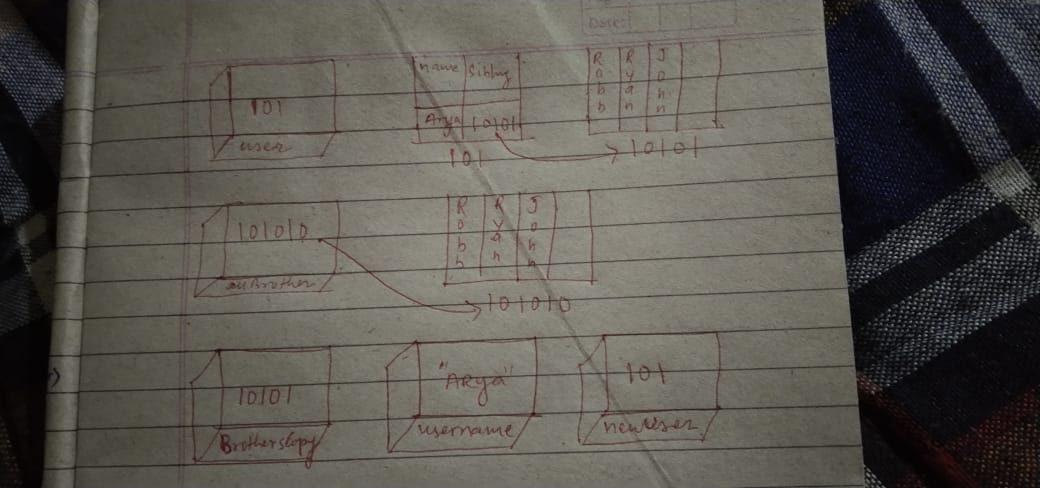 Date:
101
user
name Sibling
Arya 10101
101
Robb
Ryan
John
10101
101010
Brother
Robb
Ryan
John
101010
10101
Brotherscopy
"ARya"
username
101
newUser